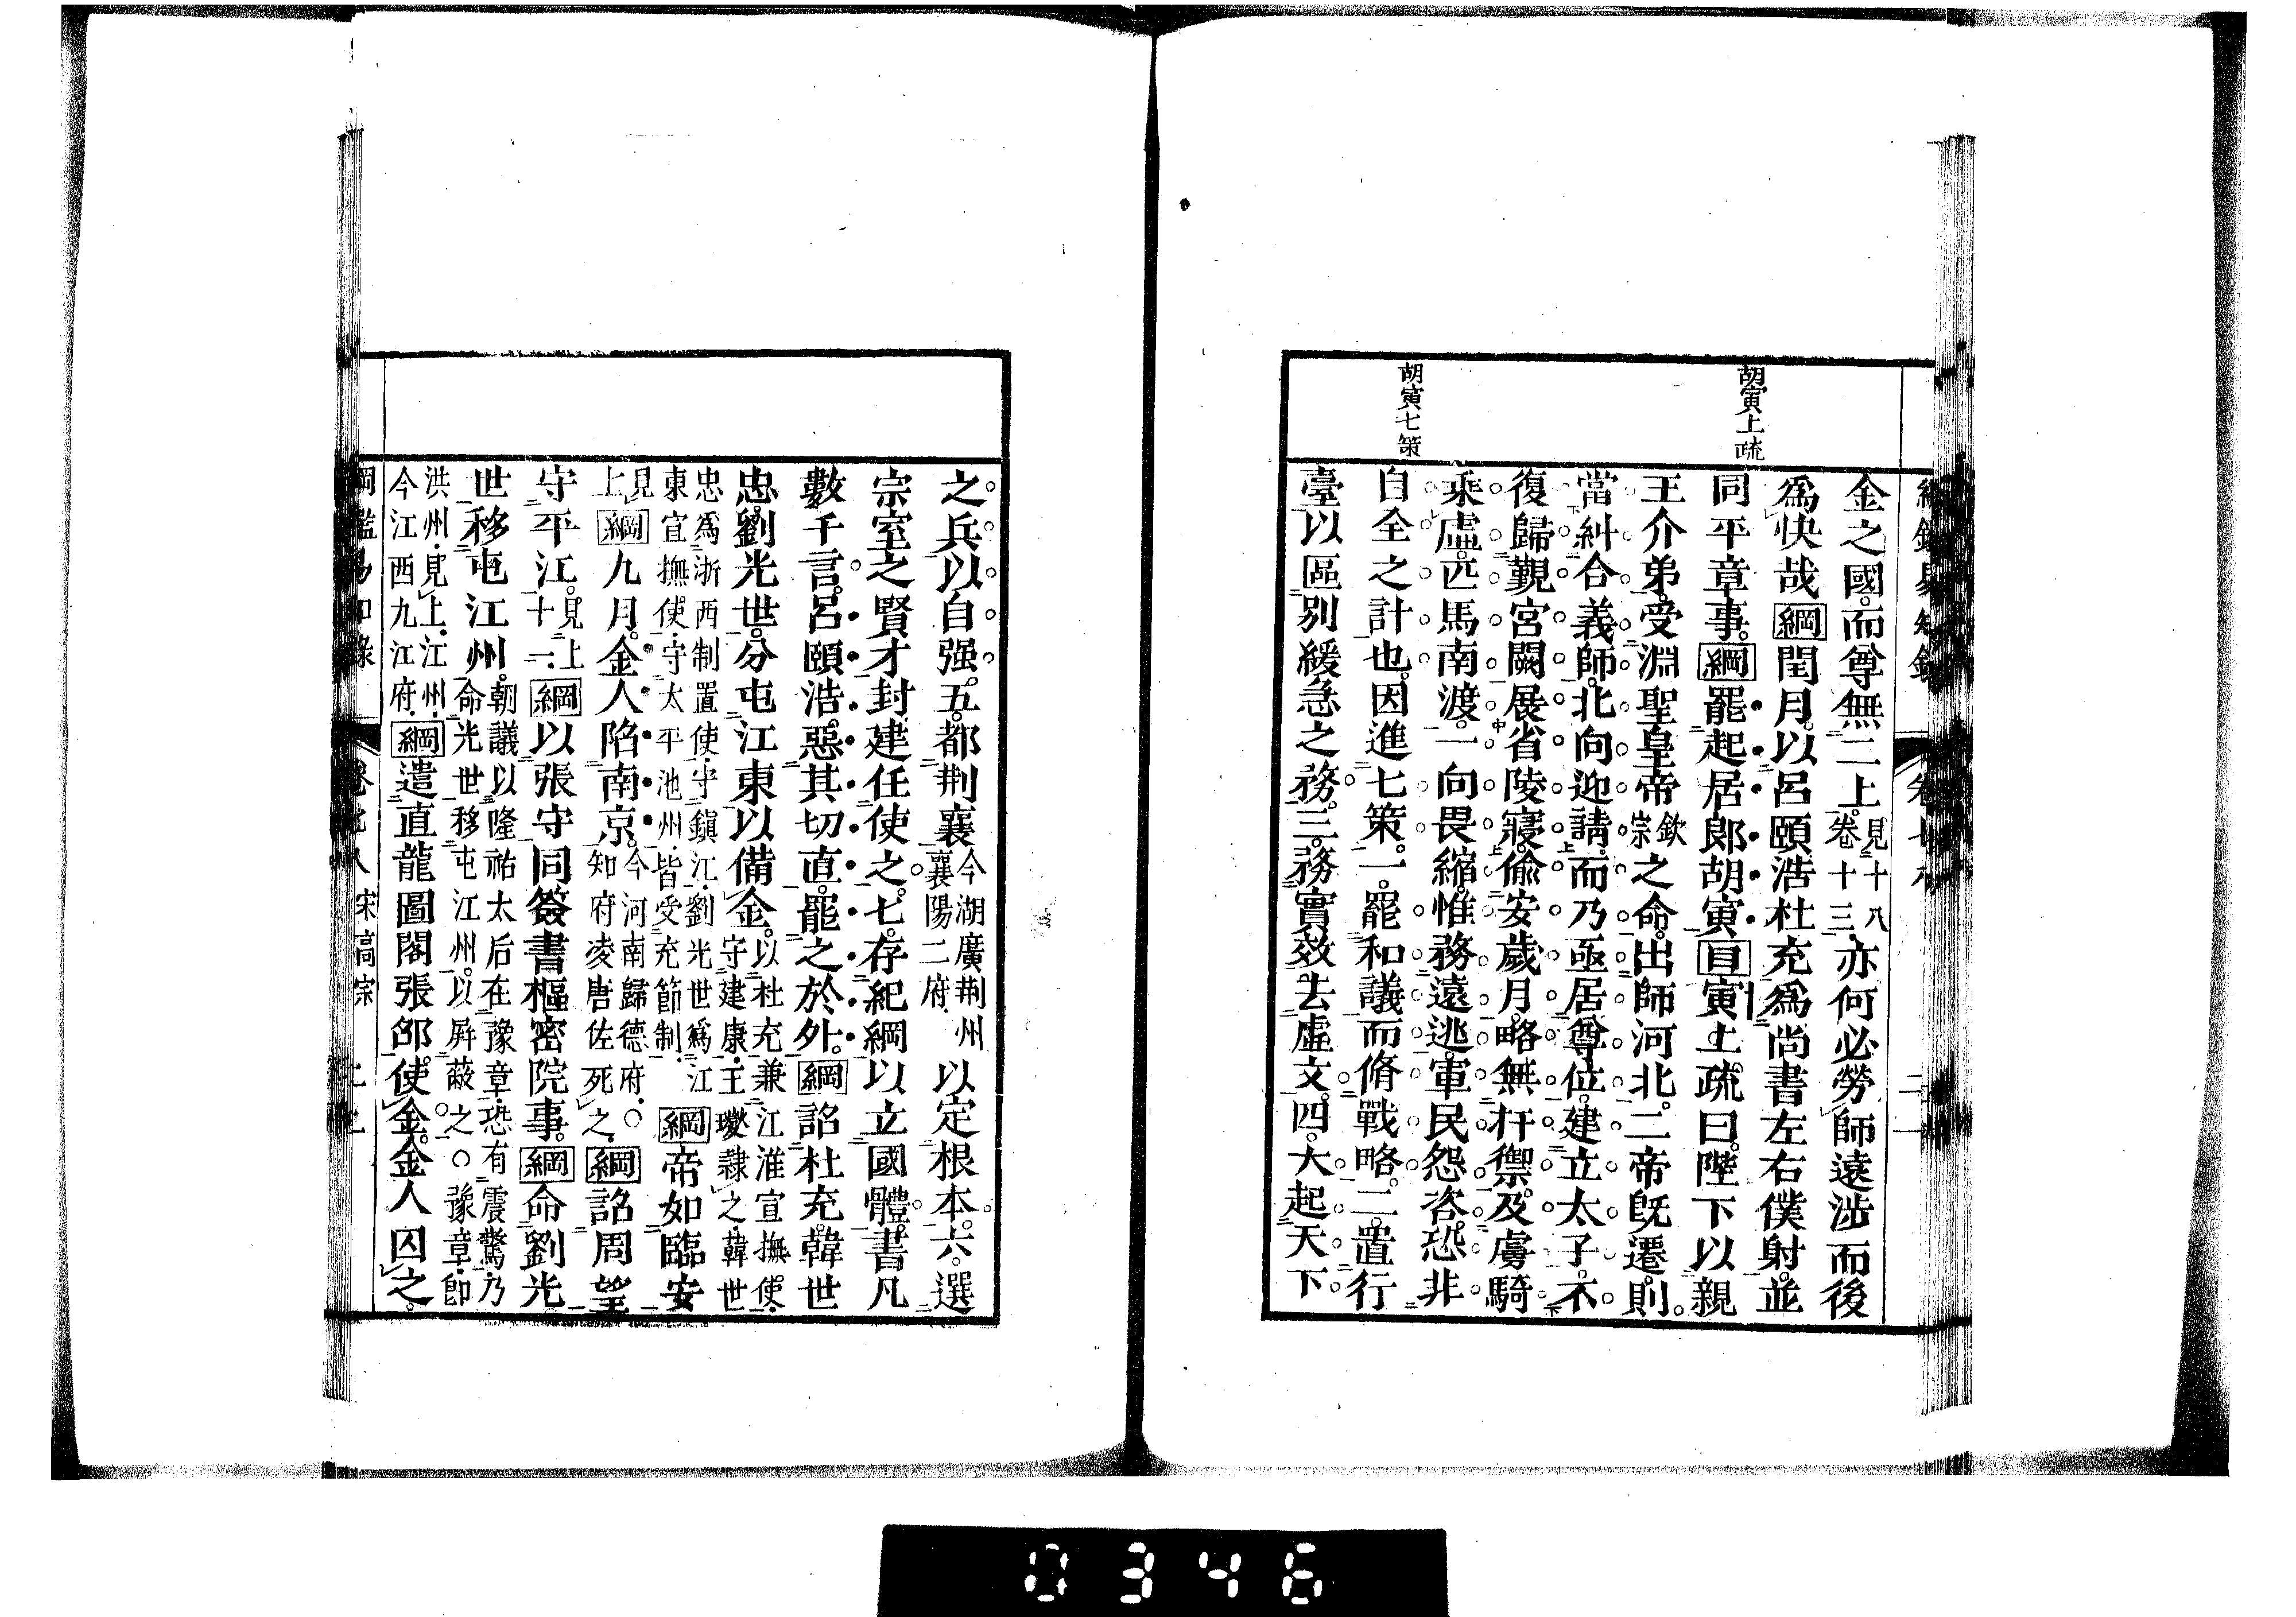 胡寅上疏
胡寅七策
金之國。而尊無二上。見十八卷十三。亦何必勞師遠涉而後
爲快哉綱閏月。以呂頤浩杜充爲尚書左右僕射。並
同平章事。綱罷起居郎胡寅目寅上疏。曰。陛下以親
王介弟。受淵聖皇帝欽宗之命。出師河北。二帝旣遷。則
當糾合義師。北向迎請。而乃亟居尊位。建立太子。不
復歸覲宮闕。展省陵寢。偷安歲月。略無扞禦。及虜騎
乘虛。匹馬南渡。一向畏縮。惟務遠逃。軍民怨咨。恐非
自全之計也。因進七策。一。罷和議而脩戰略。二。置行
臺以區別緩急之務。三。務實效去虛文。四。大起天下
之兵以自强。五。都荆襄今湖廣荆州襄陽二府以定根本。六。選
宗室之賢才封建任使之。七。存紀綱以立國體。書凡
數千言。呂頤浩。惡其切直。罷之於外。綱詔杜充。韓世
忠。劉光世。分屯江東以備金。以杜充兼江淮宣撫使。守建康。王𤫉隸之。韓世
忠爲浙西制置使。守鎭江。劉光世爲江東宣撫使。守太平池州。皆受充節制。綱帝如臨安
見上綱九月。金人陷南京。今河南歸德府。〇知府凌唐佐死之。綱詔周望
守平江。見上十一。綱以張守同簽書樞密院事。綱命劉光
世移屯江州。朝議以隆祐太后在豫章。恐有震驚。乃命光世移屯江州。以屛蔽之。〇豫章。卽
洪州。見上。江州。今江西九江府。綱遣直龍圖閣張邵。使金。金人囚之。
綱鑑易知錄 卷七八 宋高宗